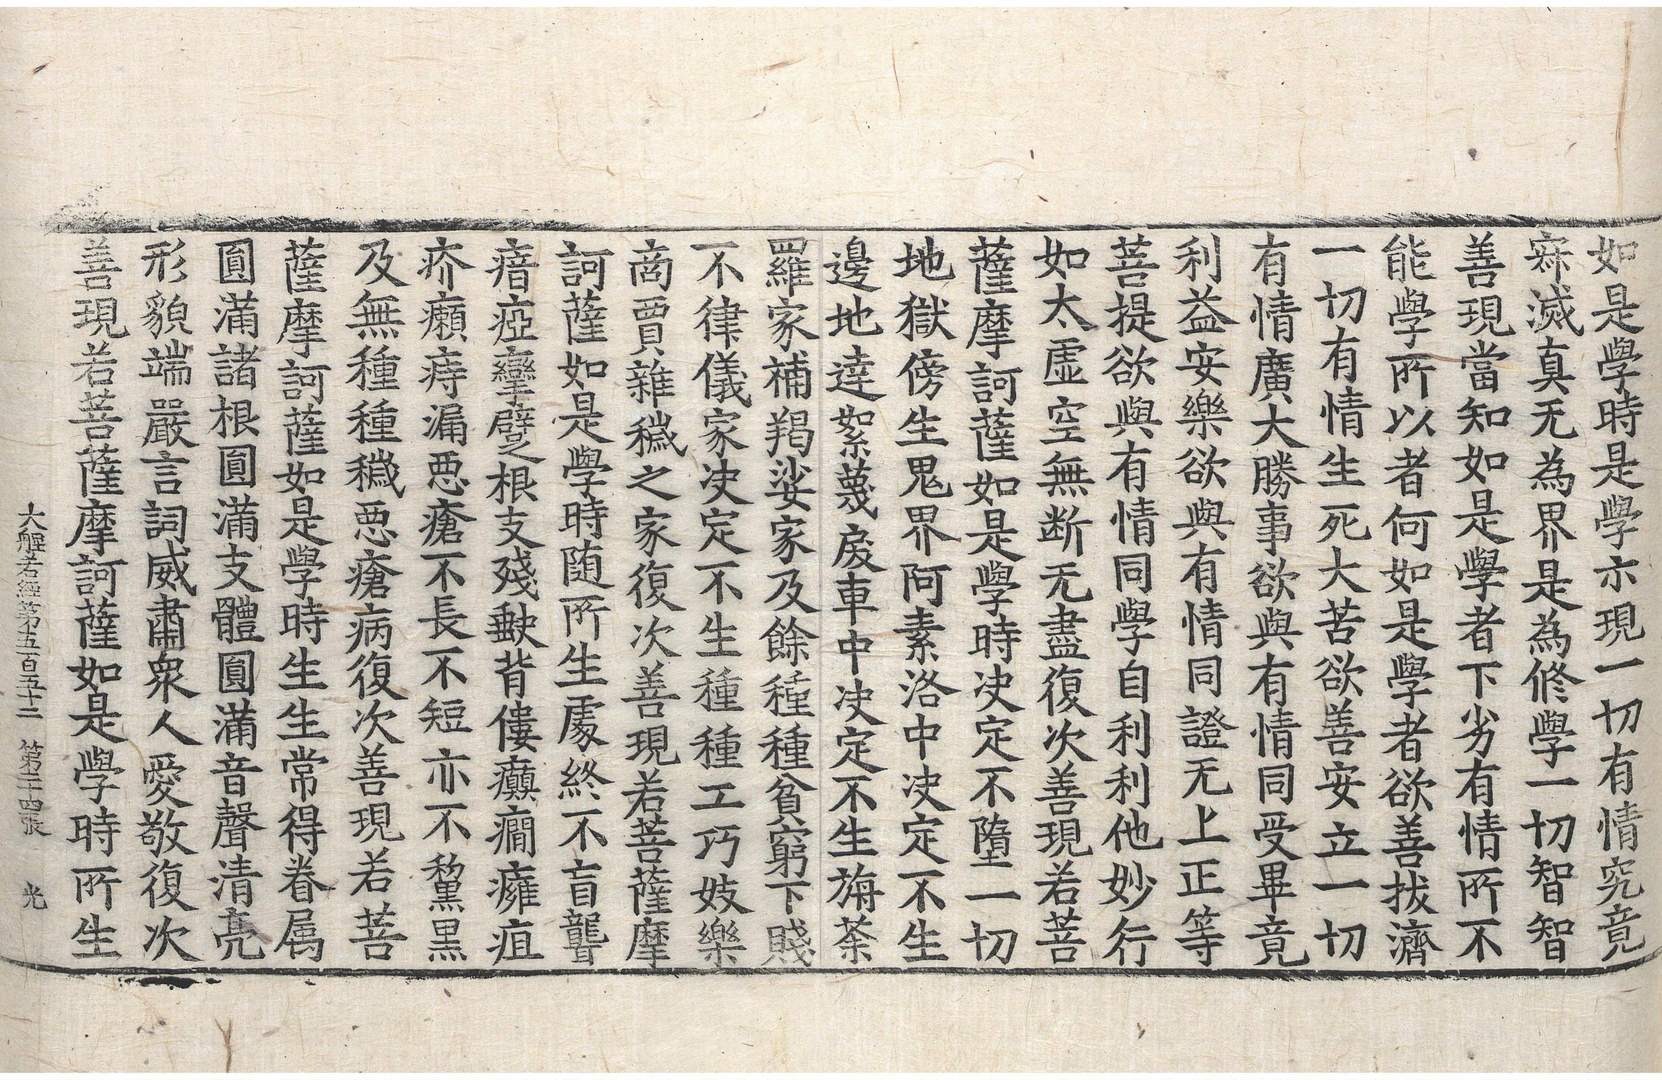 如是學時是學示現一切有情究竟
寂滅真无為界是為修學一切智智
善現當知如是學者下劣有情所不
能學所以者何如是學者欲善拔濟
一切有情生死大苦欲善安立一切
有情廣大勝事欲與有情同受畢竟
利益安樂欲與有情同證无上正等
菩提欲與有情同學自利利他妙行
如太虛空無断无盡復次善現若菩
薩摩訶薩如是學時决定不墮一切
地獄傍生鬼界阿素洛中决定不生
邊地達絮蔑戾車中决定不生旃荼
羅家補羯娑家及餘種種貧窮下賤
不律儀家决定不生種種工巧妓樂
商賈雜穢之家復次善現若菩薩摩
訶薩如是學時随所生處終不盲聾
瘖瘂攣躄根支殘缺背僂癲癇癰疽
疥癩痔漏惡瘡不長不短亦不黧黑
及無種種穢惡瘡病復次善現若菩
薩摩訶薩如是學時生生常得眷属
圓滿諸根圓滿支體圓滿音聲清亮
形貌端嚴言詞威肅衆人愛敬復次
善現若菩薩摩訶薩如是學時所生
大般若經第五百五十二 第十四張 光